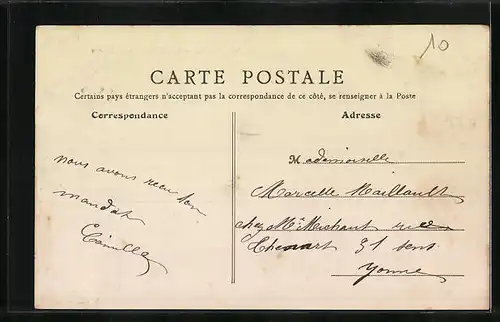 10
CARTE POSTALE
Certains pays étrangers n'acceptant pas la correspondance de ce côté, se renseigner à la Poste
Correspondance
Adresse
nous avons recu ton
mandat
Camille
Mademoiselle
Marcelle Maillault
chez Mr Michaut rue
31 Sens
Yonne